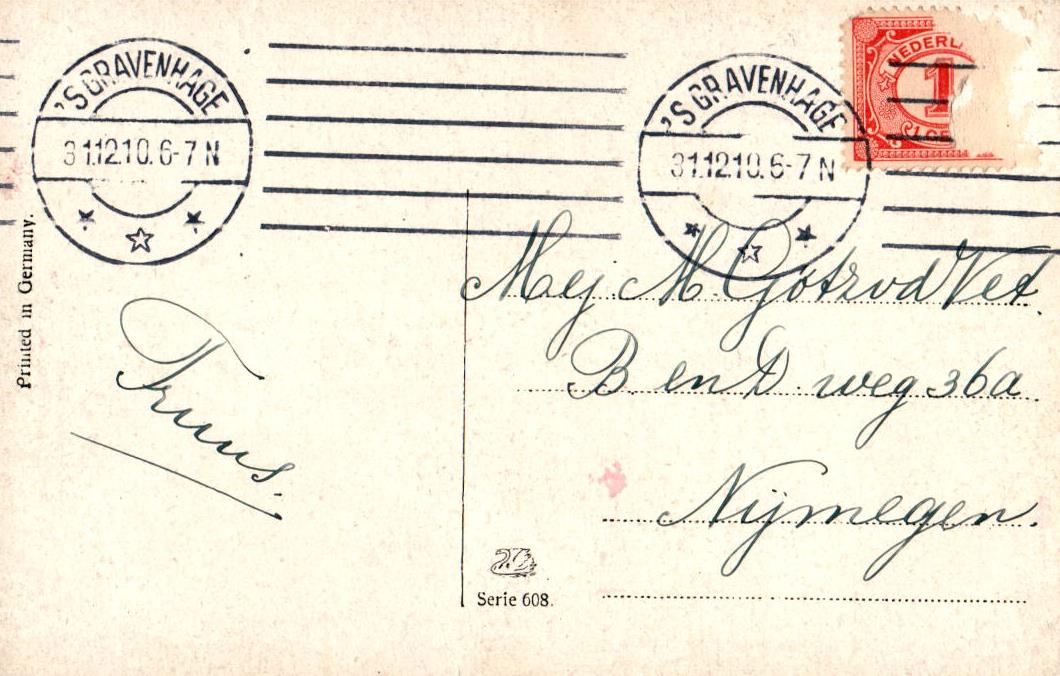 'S GRAVENHAGE
31.12.10. 6-7 N
'S GRAVENHAGE
31.12.10. 6-7 N
NEDERL
1
Printed in Germany.
Mej. M Götz v d Vet
B en D. weg 36a
Nijmegen.
Truus.
Serie 608.